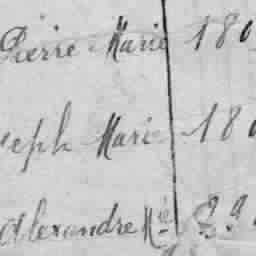 Pierre Marie 180
seph Marie 180
Alexandre Mie